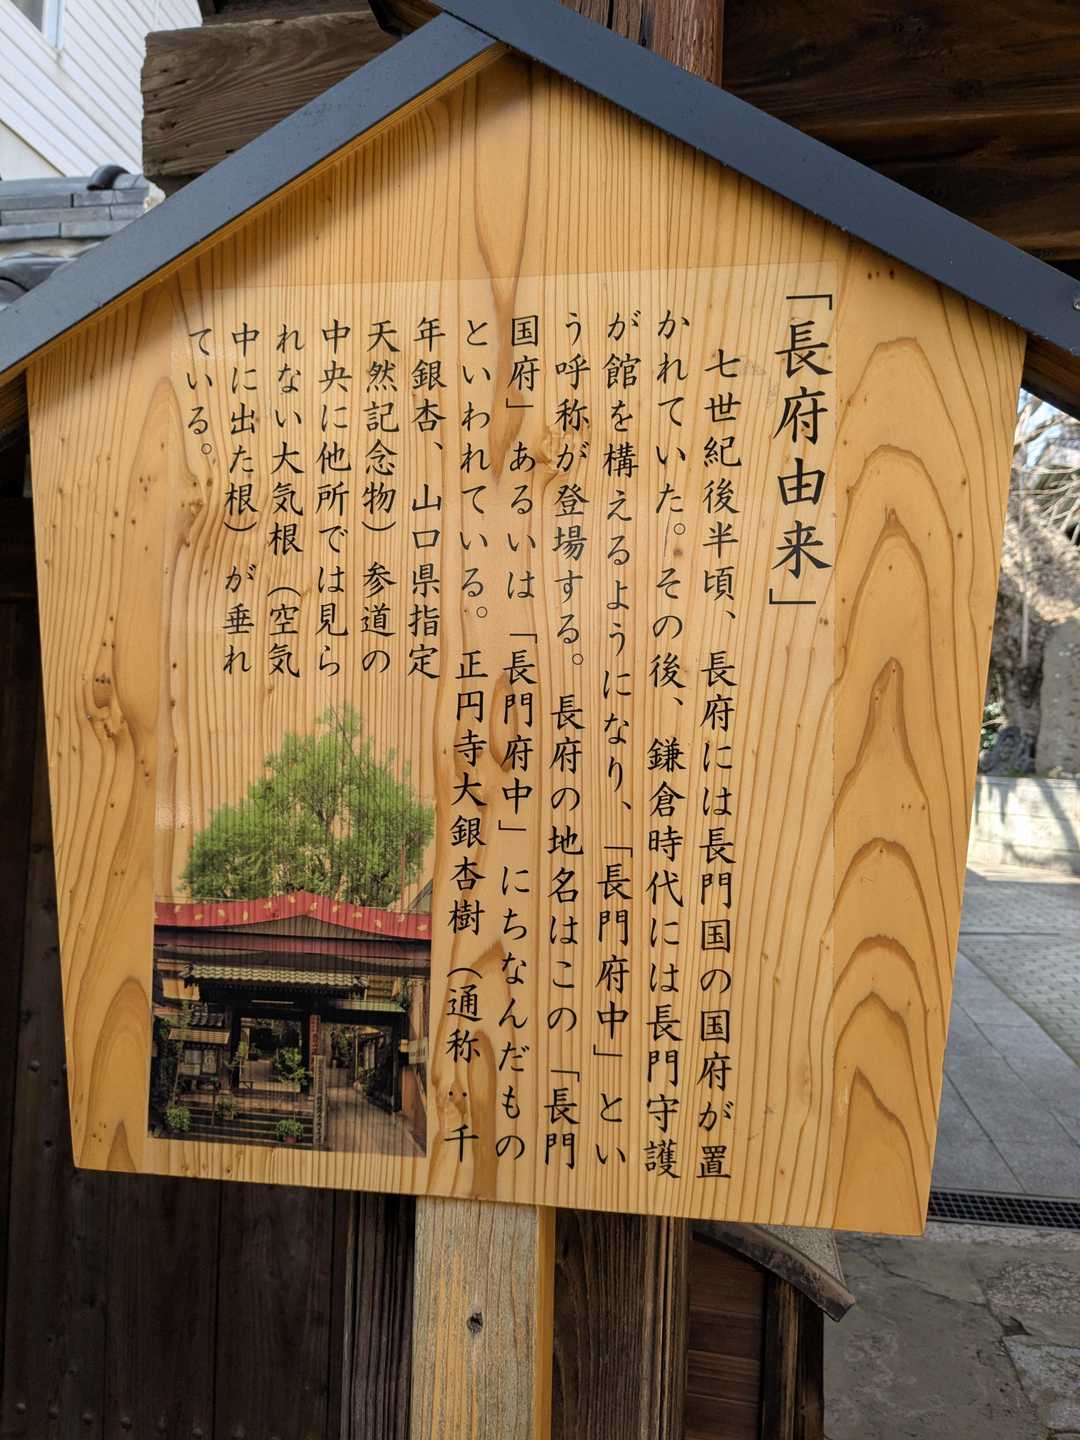 「長府由来」
七世紀後半頃、長府には長門国の国府が置
かれていた。その後、鎌倉時代には長門守護
が館を構えるようになり、「長門府中」とい
う呼称が登場する。長府の地名はこの「長門
国府」あるいは「長門府中」にちなんだもの
といわれている。正円寺大銀杏樹（通称：千
年銀杏、山口県指定
天然記念物）参道の
中央に他所では見ら
れない大気根（空気
中に出た根）が垂れ
ている。